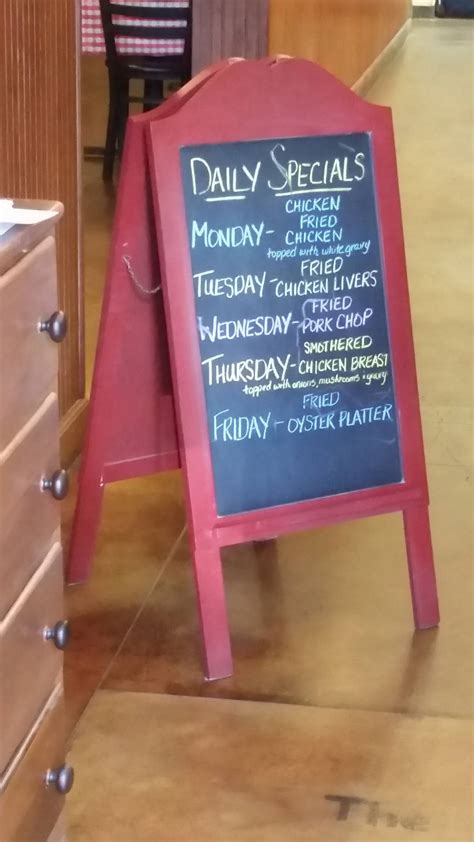 DAILY SPECIALS
CHICKEN
FRIED
MONDAY - CHICKEN
topped with white gravy
FRIED
TUESDAY - CHICKEN LIVERS
FRIED
WEDNESDAY - PORK CHOP
SMOTHERED
THURSDAY - CHICKEN BREAST
topped with onions, mushrooms + gravy
FRIED
FRIDAY - OYSTER PLATTER
The